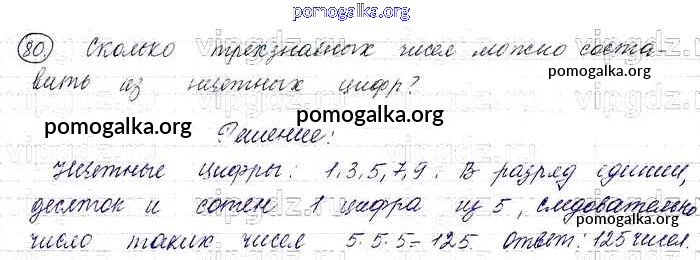 pomogalka.org
80. Сколько трехзначных чисел можно соста-
вить из нечетных цифр?
pomogalka.org
pomogalka.org
Решение:
Нечетные цифры: 1,3,5,7,9. В разряд единиц,
десяток и сотен 1 цифра из 5, следовательно
число таких чисел 5·5·5=125. Ответ: 125 чисел.
pomogalka.org